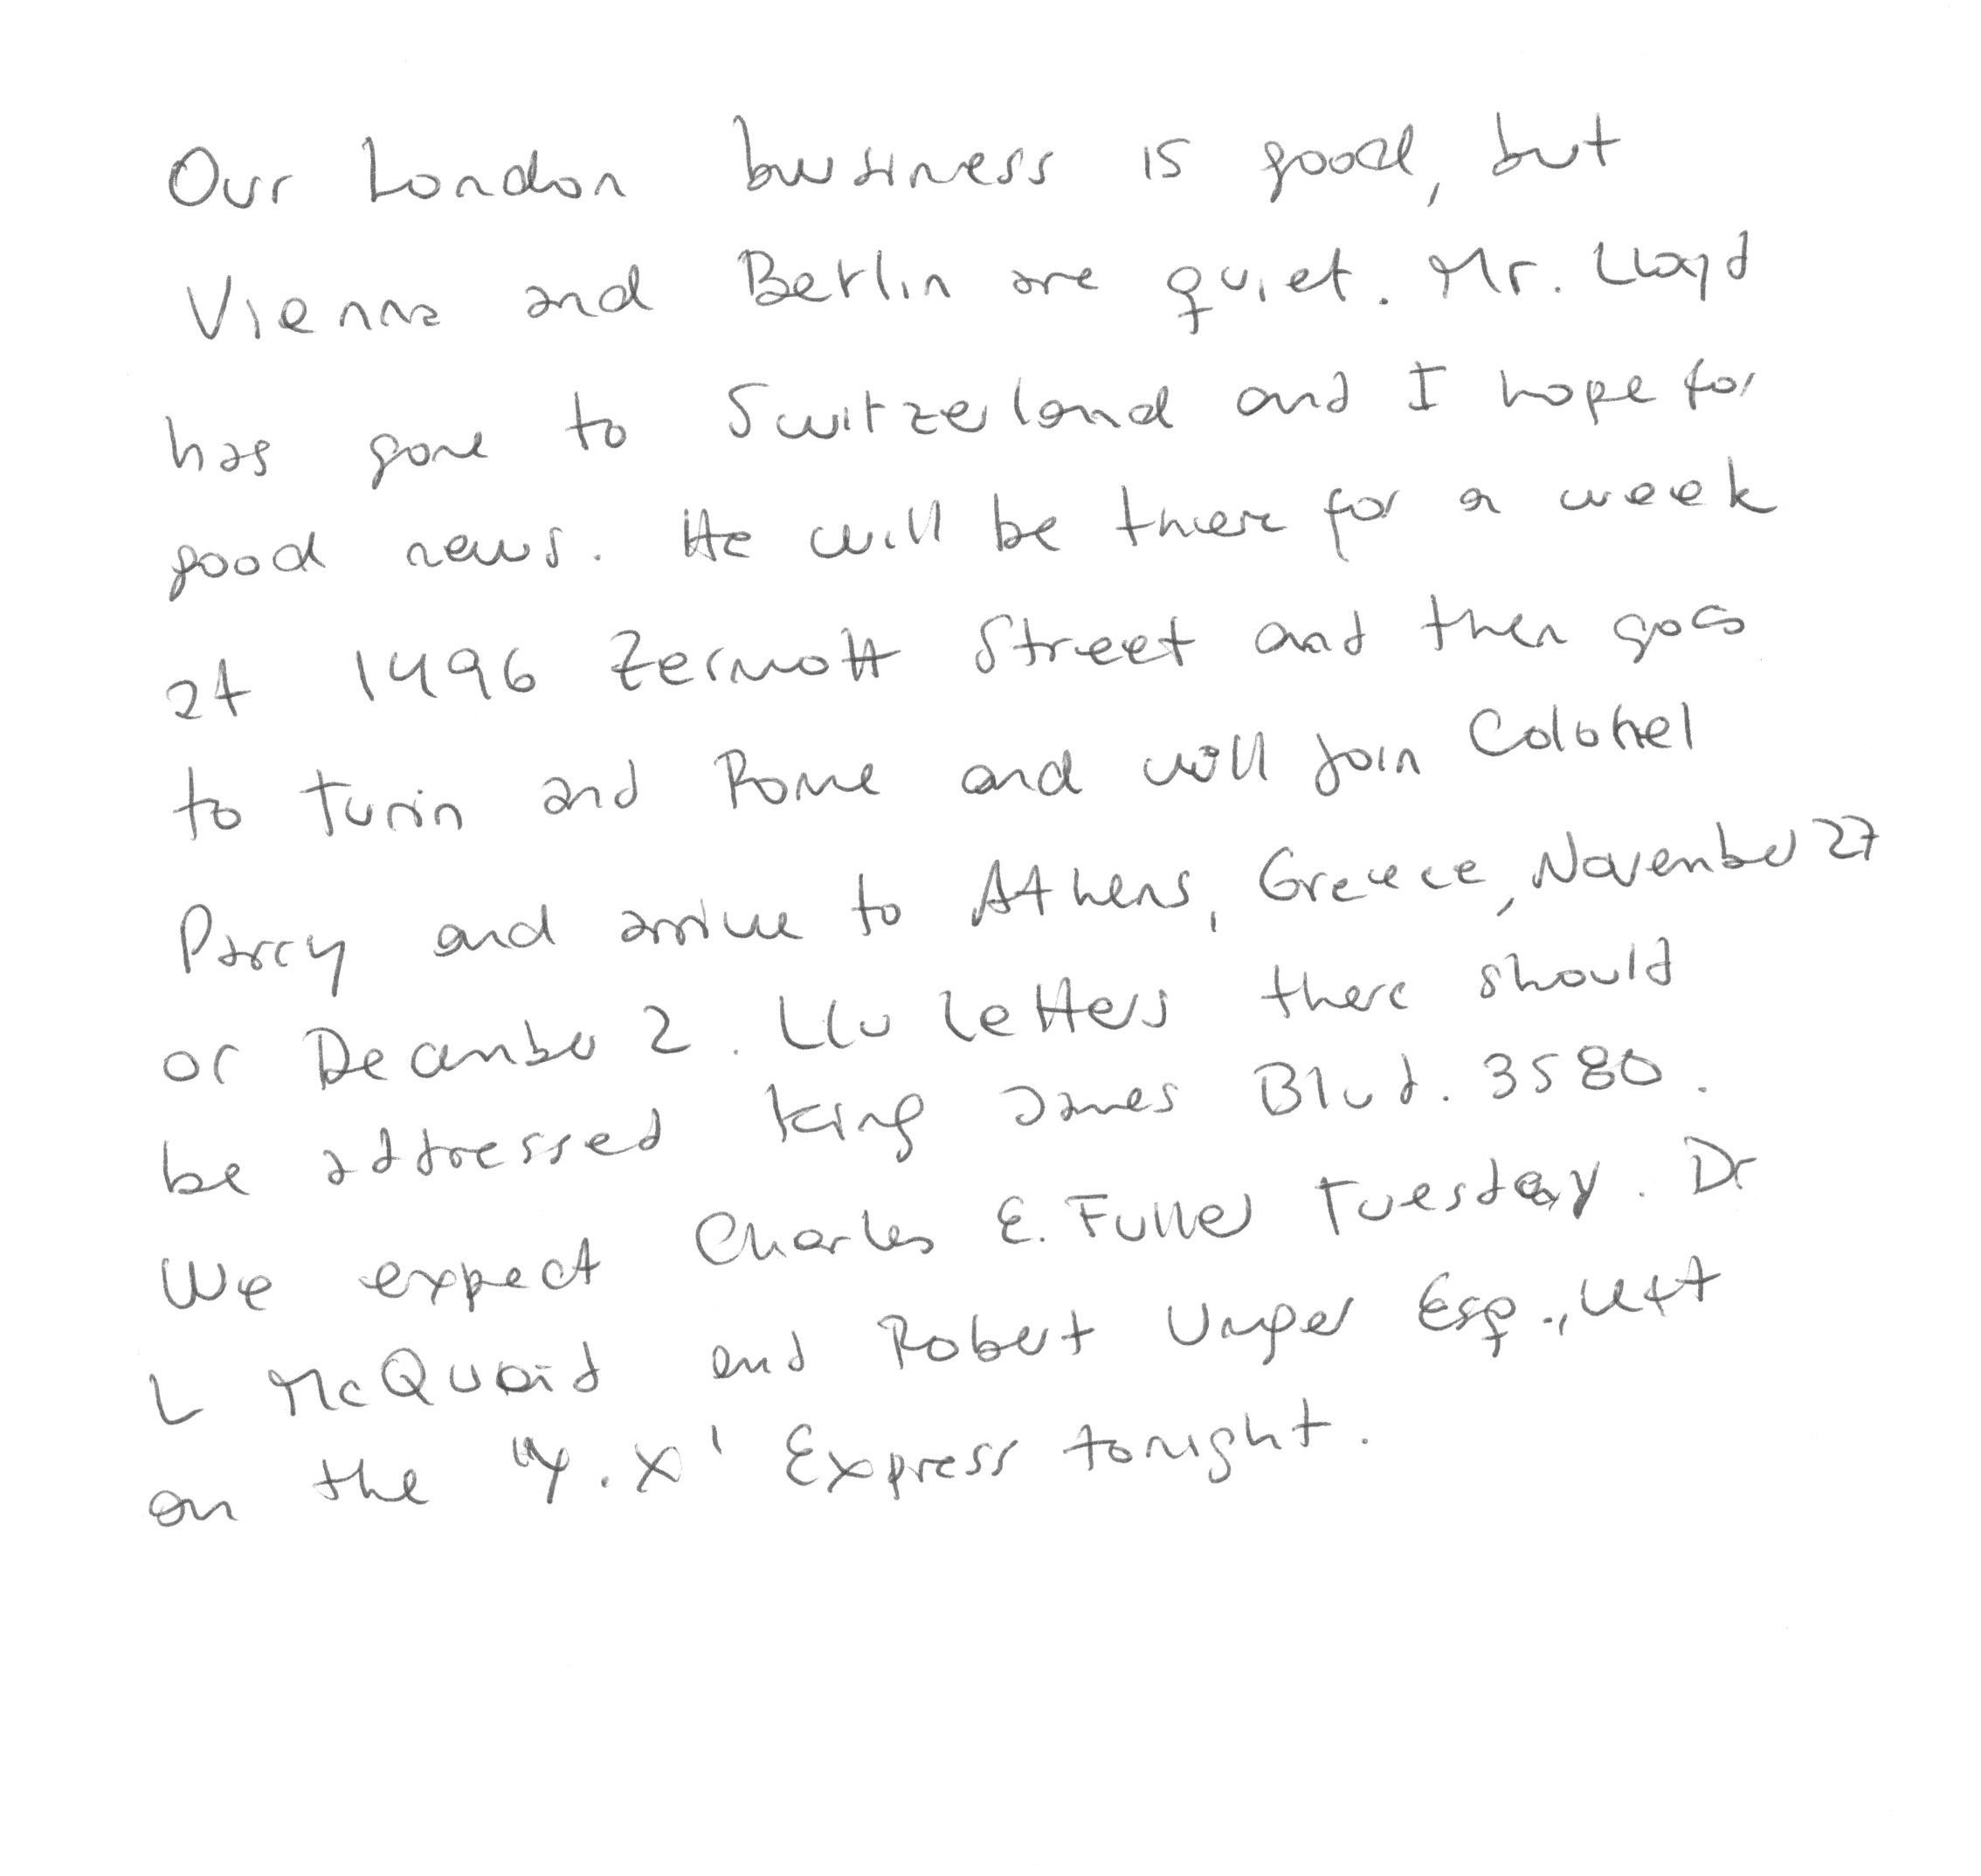 Our London business is good, but
Vienna and Berlin are quiet. Mr. Lloyd
has gone to Switzerland and I hope for
good news. He will be there for a week
at 1496 Zermott Street and then goes
to Turin and Rome and will join Colonel
Parcy and arrive to Athens, Greece, November 27
or December 2. letters there should
be addressed King James Blvd. 3580.
We expect Charles E. Fuller Tuesday. Dr
L McQuaid and Robert Unger Esq., left
on the "Y.X' Express tonight.